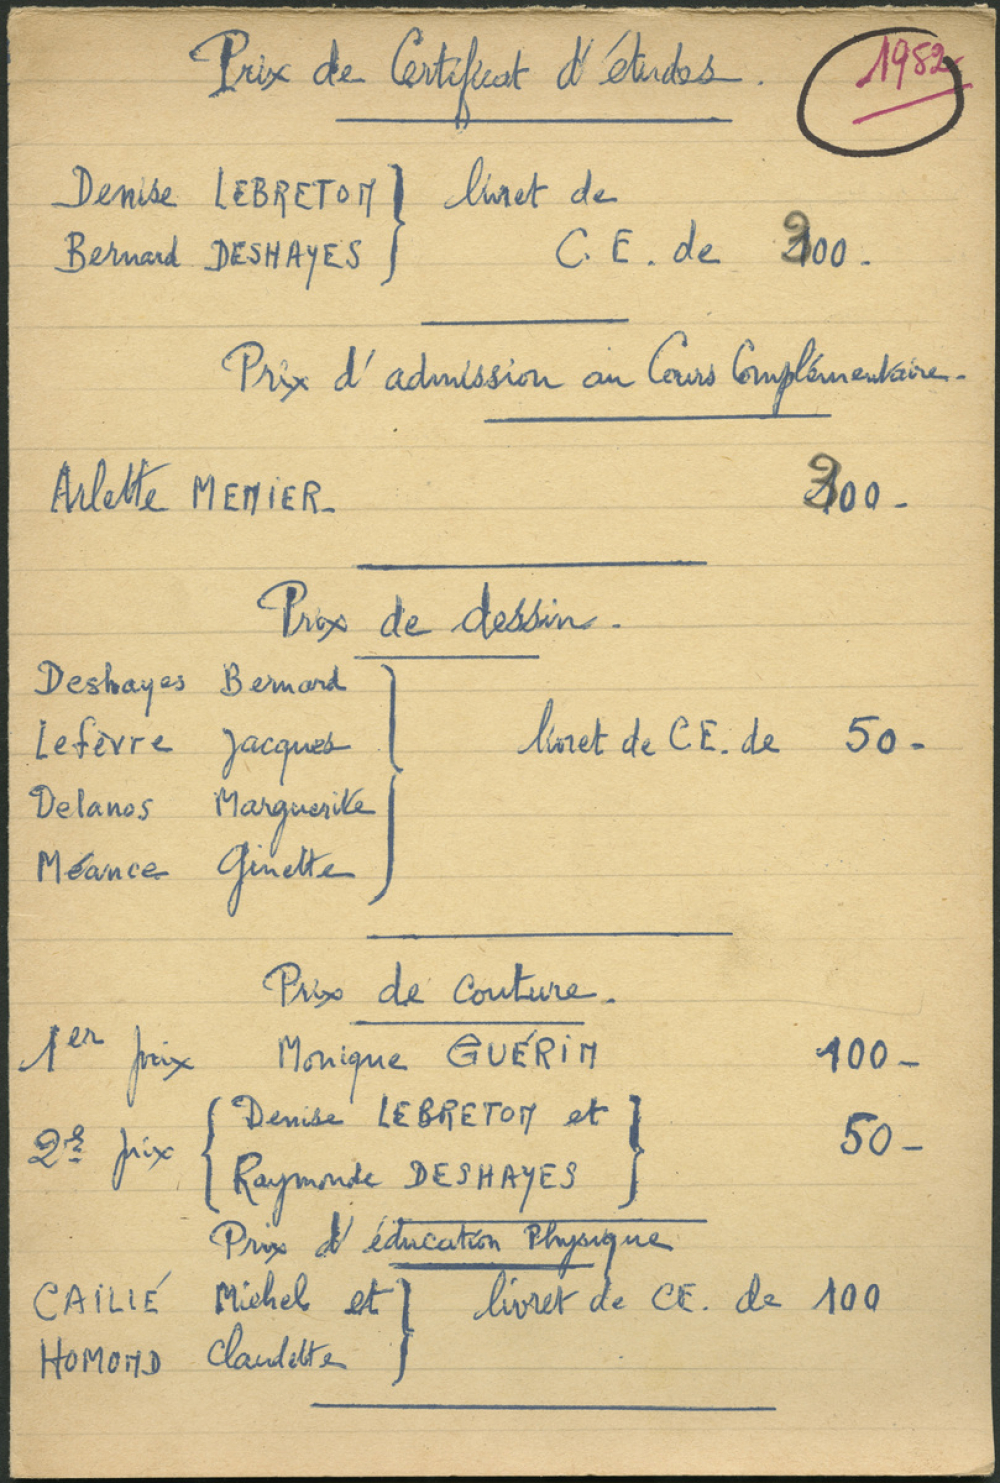 Prix de Certificat d'études. 1952-
Denise LEBRETON } livret de
Bernard DESHAYES C.E. de 200.-
Prix d'admission au Cours Complémentaire.-
Arlette MENIER- 200-
Prix de dessin.
Deshayes Bernard
Lefèvre Jacques } livret de C.E. de 50-
Delanos Marguerite
Méance Ginette
Prix de couture.
1er prix Monique GUÉRIN 100-
2e prix { Denise LEBRETON et } 50-
Raymonde DESHAYES
Prix d'éducation Physique
CAILIÉ Michel et } livret de CE. de 100
HOMOND Claudette